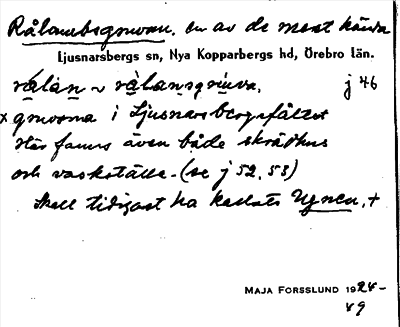 Rålambsgruvan, en av de mest kända
Ljusnarsbergs sn, Nya Kopparbergs hd, Örebro län.
rålàn ~ rålansgruva. j 46
x gruvorna i Ljusnarsbergsfältet
Här fanns även både skrädhus
och vaskställe. (se j 52, 53)
Skall tidigast ha kallats Nynen, +
MAJA FORSSLUND 1924-
49